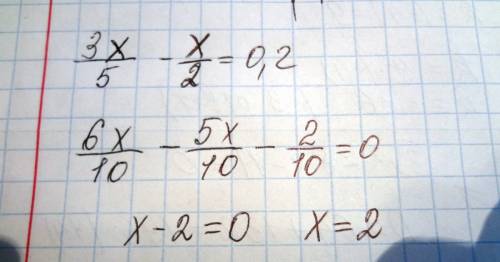 3x/5 - x/2 = 0,2
6x/10 - 5x/10 - 2/10 = 0
x-2=0 x=2